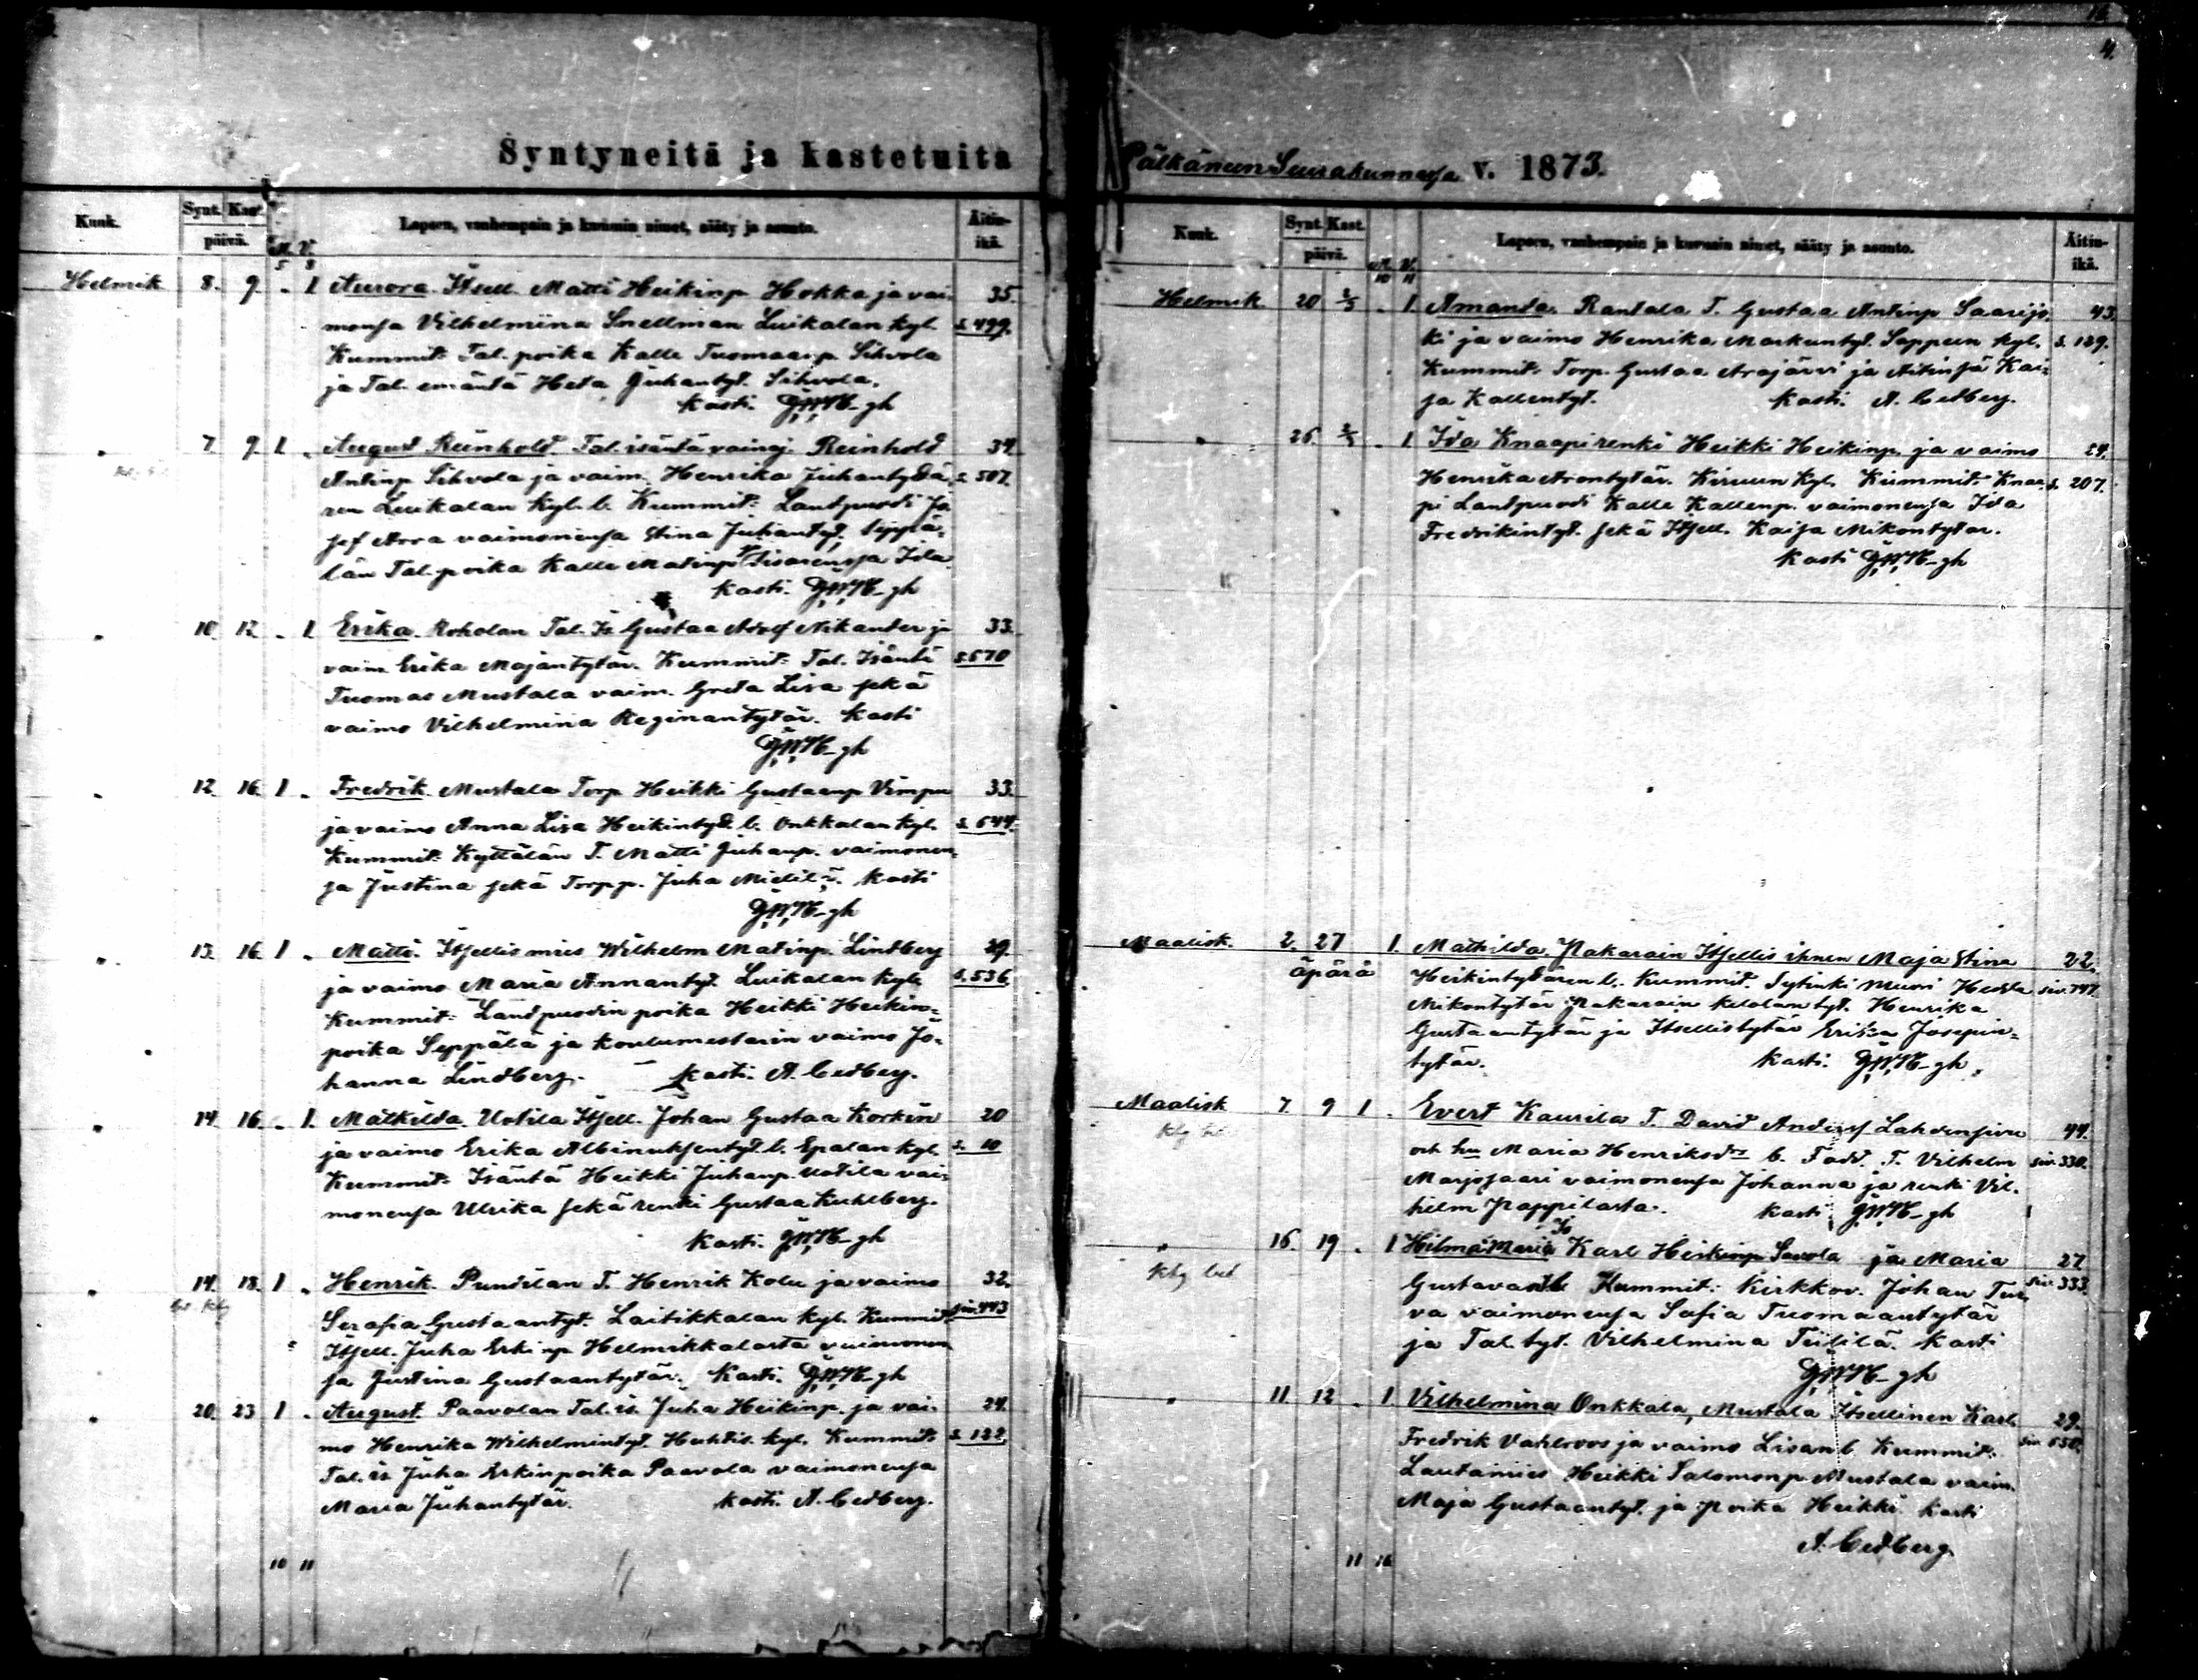 Syntyneitä ja kastetuita
Kuuk. Synt. Kast. päivä. M. V. Lapsen, vanhempain ja kummin nimet, sääty ja asunto. Äitin-ikä.
5 8
Helmik 8. 9. . 1 Aurora. Itsell. Matti Heikinp. Hokka ja vai- 35.
monsa Vilhelmiina Snellman Luikalan kyl. s. 499.
Kummit: Tal. poika Kalle Tuomaanp. Sihvola
ja Tal. emäntä Heta Juhantyt. Sihvola.
Kasti. G.W.H-gh
" 7 9. 1 . August Reinhold. Tal. isäntä vainaj. Reinhold 34
Antinp Sihvola ja vaim. Henrika Juhantytä- s. 507.
ren Luikalan kyl. l. Kummit: Lautpuodi Jo
sef Arra vaimonensa Stina Juhantyt. Seppä-
län Tal. poika Kalle Matinp. Sisarensa Ida
Kasti. G.W.H-gh
" 10. 12. . 1. Erika. Roholan Tal. Is. Gustaa Adolf Nikander ja 33.
vaim. Erika Majantytär. Kummit: Tal. Isäntä s. 570
Tuomas Mustala vaim. Greta Lisa sekä
vaimo Vilhelmina Reginantytär. Kasti
G.W.H-gh
" 12. 16. 1 . Fredrik. Mustala Torp. Heikki Gustaanp Vimpu 33.
ja vaimo Anna Lisa Heikintyt. l. Onkkalan kyl. s. 644.
Kummit: Kyllälän T. Matti Juhanp. vaimonen-
sa Justina sekä Torpp. Juha Mielilä. Kasti
G.W.H-gh
" 13. 16. 1 . Matti. Itsellismies Wilhelm Matinp. Lindberg 29.
ja vaimo Maria Annantyt. Luikalan kyl. s. 536.
Kummit: Lautpuodin poika Heikki Heikin-
poika Seppälä ja koulumestarin vaimo Jo-
hanna Lindberg. Kasti. A. Cedberg.
" 14. 16. . 1. Mathilda. Uotila Itsell. Johan Gustaa Korkin 20
ja vaimo Erika Albinuksentyt. l. Epalan kyl. s. 10
Kummit: Isäntä Heikki Juhanp. Uotila vai-
monensa Ulrika sekä renki Gustaa Kuhlberg.
Kasti. G.W.H-gh
" 14. 18. 1 . Henrik. Puntilan T. Henrik Kolu ja vaimo 32.
Serafia Gustaantyt. Laitikkalan kyl. Kummit: siv. 443
Itsell. Juha Erkinp Helmikkalasta vaimonen
sa Justina Gustaantytär. Kasti. G.W.H-gh
" 20. 23 1 . August. Paavolan Tal. is. Juha Heikinp. ja vai- 24.
mo Henrika Wilhelmintyt. Huhtis. kyl. Kummit: s. 122.
Tal. is. Juha Erkinpoika Paavola vaimonensa
Maria Juhantytär. Kasti. A. Cedberg.
10 11
4.
Pälkäneen Seurakunnassa v. 1873.
Kuuk. Synt. Kast. päivä. M. V. Lapsen, vanhempain ja kummin nimet, sääty ja asunto. Äitin-ikä.
10 11
Helmik 20 2/3 . 1. Amanda. Rantala T. Gustaa Antinp Saarijo- 43.
ki ja vaimo Henrika Markuntyt. Sappeen kyl. s. 129.
Kummit: Torp. Gustaa Arajärvi ja Äitinsä Kai-
sa Kallentyt. Kasti. A. Cedberg.
" 26. 2/3 . 1 Ida Knaapi renki Heikki Heikinp. ja vaimo 24.
Henrika Arontytär. Kiruun kyl. Kummit: Knaa- s. 207.
pi Lautpuodi Kalle Kallenp. vaimonensa Ida
Fredrikintyt. sekä Itsell. Kaisa Mikontytar.
Kasti G.W.H-gh
Maalisk. 2. 27 1. Mathilda. Jtakarain Itsellis ihnen Maja Stina 22.
äpärä Heikintytären l. Kummit. Sytinki muori Hedda siv. 747.
Mikontytär Jtakarain Kelolan tyt. Henrika
Gustaantytär ja Itsellistytär Erika Josepin-
tytär. Kasti. G.W.H-gh.
Maalisk 7. 9 1 . Evert Kaurila T. David Anders Lahdensivu 44.
och hu Maria Henriksdr b. Fadd. T. Vilhelm siv. 330.
Marjosaari vaimonensa Johanna ja renki Vil-
helm Pappilasta. Kasti G.W.H-gh
" 16. 19 . 1 Hilma Maria Is Karl Heikinp Savola ja Maria 27
Gustavan l. Kummit: Kirkkov. Johan Tur- siv. 333.
va vaimonensa Sofia Tuomaantytär
ja Tal. tyt. Vilhelmina Teililä. Kasti
G.W.H-gh
" 11 12 . 1 Vilhelmina Onkkala, Mustala Itsellinen Karl 29.
Fredrik Vahlroos ja vaimo Lisan l. Kummit: siv. 650.
Lautamies Heikki Salomonp Mustala vaim.
Maja Gustaantyt. ja poika Heikki Kasti
A. Cedberg.
11 16